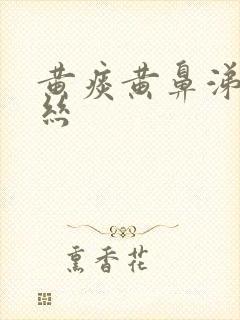 黄痰黄鼻涕血
絲
熏香花